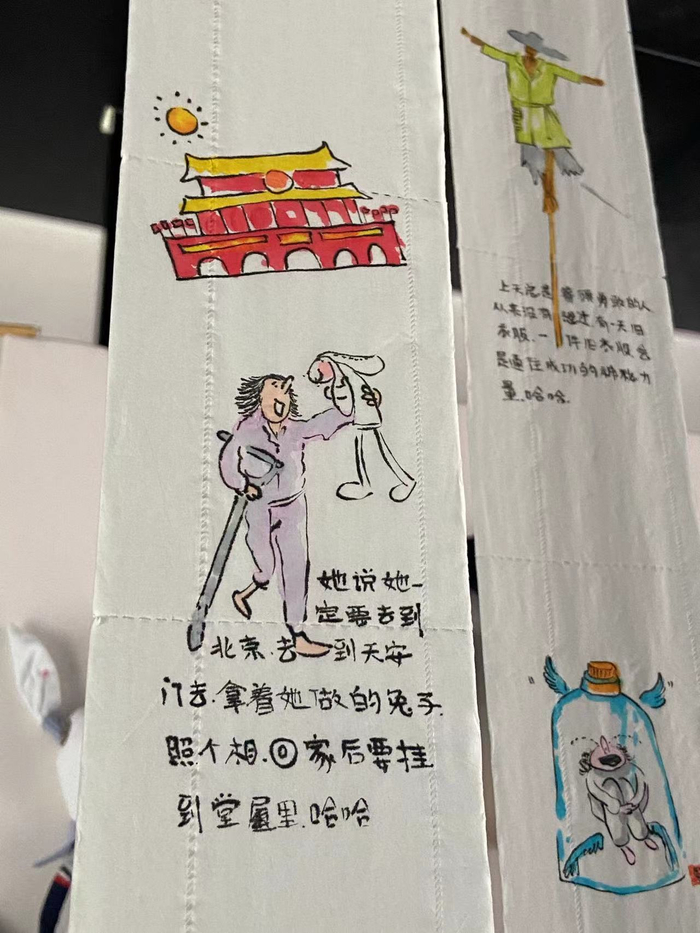 她说她一
定要去到
北京.去到天安
门去.拿着她做的兔子.
照个相.回家后要挂
到堂屋里.哈哈
上天总是眷顾勇敢的人
从来没有
衣服.一件旧衣服会
是通往成功的
量.哈哈.